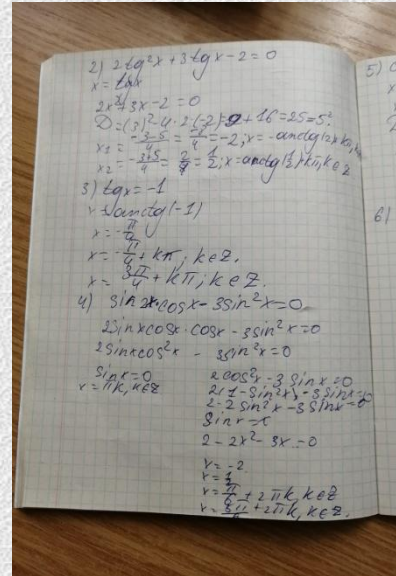 2) 2tg²x + 3tgx - 2 = 0
x = tgx
2x² + 3x - 2 = 0
D = (3)² - 4·2·(-2) = 9 + 16 = 25 = 5²
x₁ = (-3-5)/4 = = -2; x = -arctg(2) + πk, k∈Z
x₂ = (-3+5)/4 = 2/4 = 1/2; x = arctg(1/2) + kπ, k∈Z
3) tgx = -1
x = arctg(-1)
x = -π/4
x = -π/4 + kπ; k∈Z.
x = 3π/4 + kπ; k∈Z.
4) sin2x·cosx - 3sin²x = 0
2sinxcosx·cosx - 3sin²x = 0
2sinxcos²x - 3sin²x = 0
sinx = 0
x = πk, k∈Z
2cos²x - 3sinx = 0
2(1-sin²x) - 3sinx = 0
2-2sin²x - 3sinx = 0
sinx = x
2 - 2x² - 3x = 0
x = -2
x = 1/2
x = π/6 + 2πk, k∈Z
x = 5π/6 + 2πk, k∈Z.
5)
6)